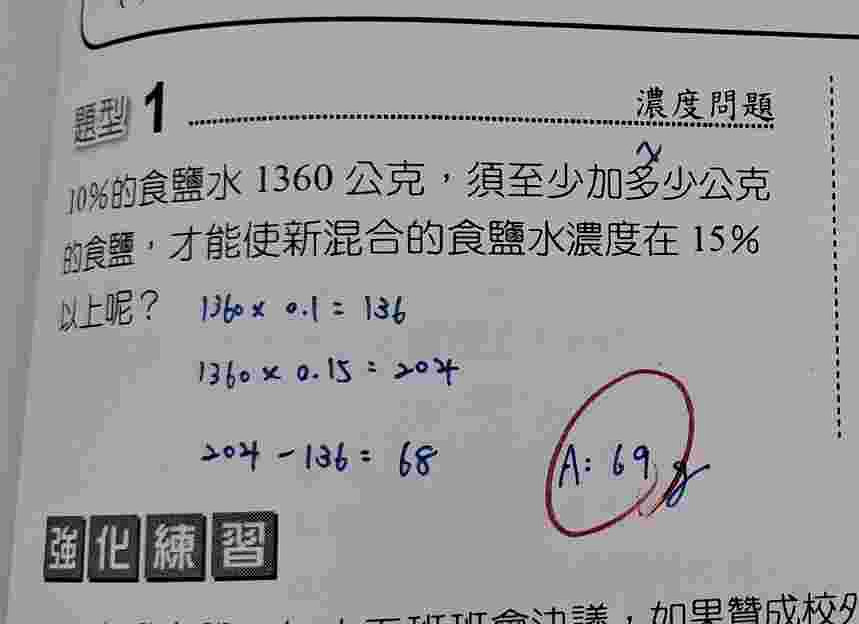 題型 1 濃度問題
x
10%的食鹽水 1360 公克，須至少加多少公克
的食鹽，才能使新混合的食鹽水濃度在 15%
以上呢？ 1360 x 0.1 = 136
1360 x 0.15 = 204
204 - 136 = 68
A: 69 g
強化練習
班會決議，如果贊成校外